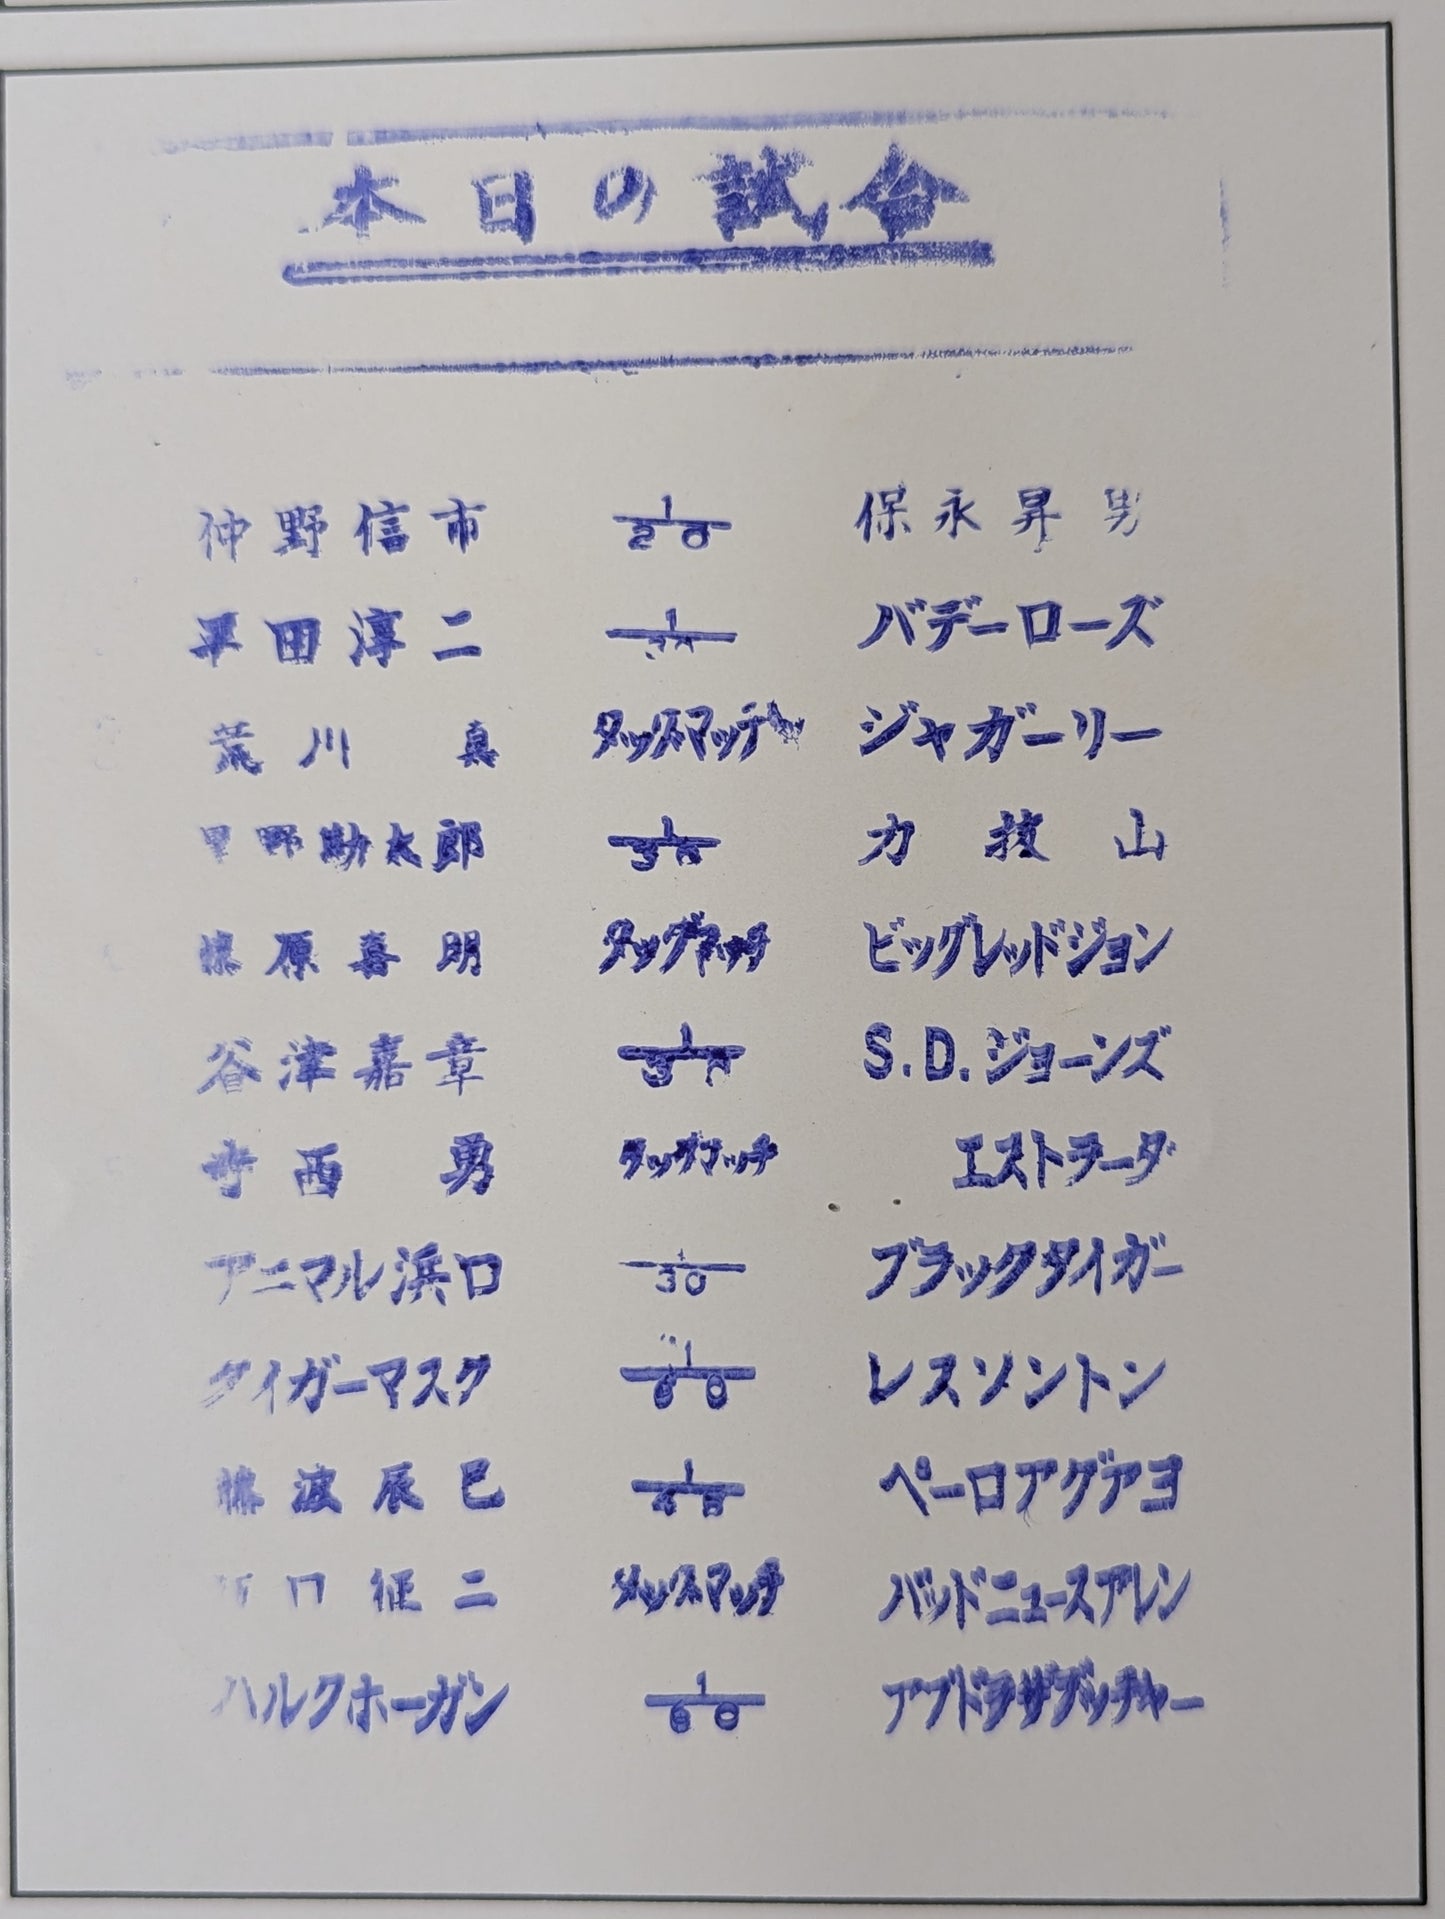 本日の試合
仲野信市 1/20 保永昇男
平田淳二 1/20 バデーローズ
荒川真 タッグマッチ ジャガーリー
星野勘太郎 1/30 力抜山
藤原喜明 タッグマッチ ビッグレッドジョン
谷津嘉章 1/30 S.D.ジョーンズ
寺西勇 タッグマッチ エストラーダ
アニマル浜口 1/30 ブラックタイガー
タイガーマスク 1/60 レスソントン
藤波辰巳 1/45 ペーロアグアヨ
坂口征二 タッグマッチ バッドニュースアレン
ハルクホーガン 1/60 アブドラザブッチャー